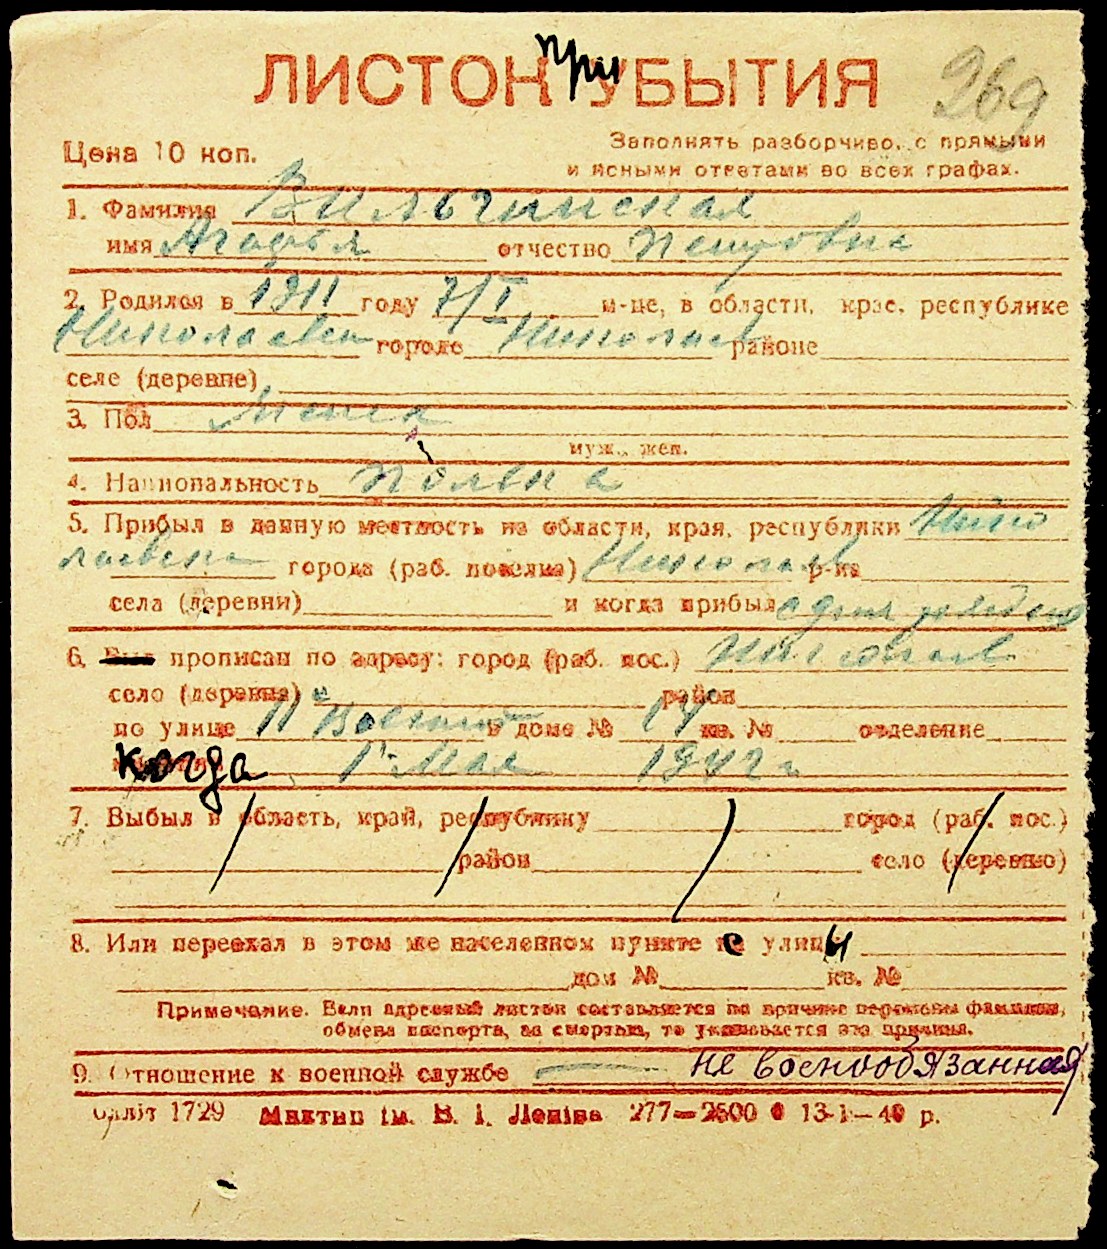 при
ЛИСТОК УБЫТИЯ 269
Цена 10 коп. Заполнять разборчиво, с прямыми
и ясными ответами во всех графах.
1. Фамилия Вильчинская
имя Агафья отчество Петровна
2. Родился в 1911 году 7/I м-це, в области, крае, республике
Николаевск городе Николаев районе
селе (деревне)
3. Пол Жена
муж., жен.
4. Национальность Полька
5. Прибыл в данную местность из области, края, республики Нико
лаевск города (раб. поселка) Николаев р-на
села (деревни) и когда прибыл с дня рожден
6. Был прописан по адресу: город (раб. пос.) Николаев
село (деревня) район
по улице Военной в доме № 14 кв. № отделение
когда 1 Мая 1942 г
7. Выбыл в область, край, республику город (раб. пос.)
район село (деревню)
8. Или переехал в этом же населенном пункте с улицы
дом № кв. №
Примечание. Если адресный листок составляется по причине перемены фамилии,
обмена паспорта, за смертью, то указывается эта причина.
9. Отношение к военной службе не военнообязанная
Облліт 1729 ім. В. І. Леніна 277—2500 13-1—40 р.